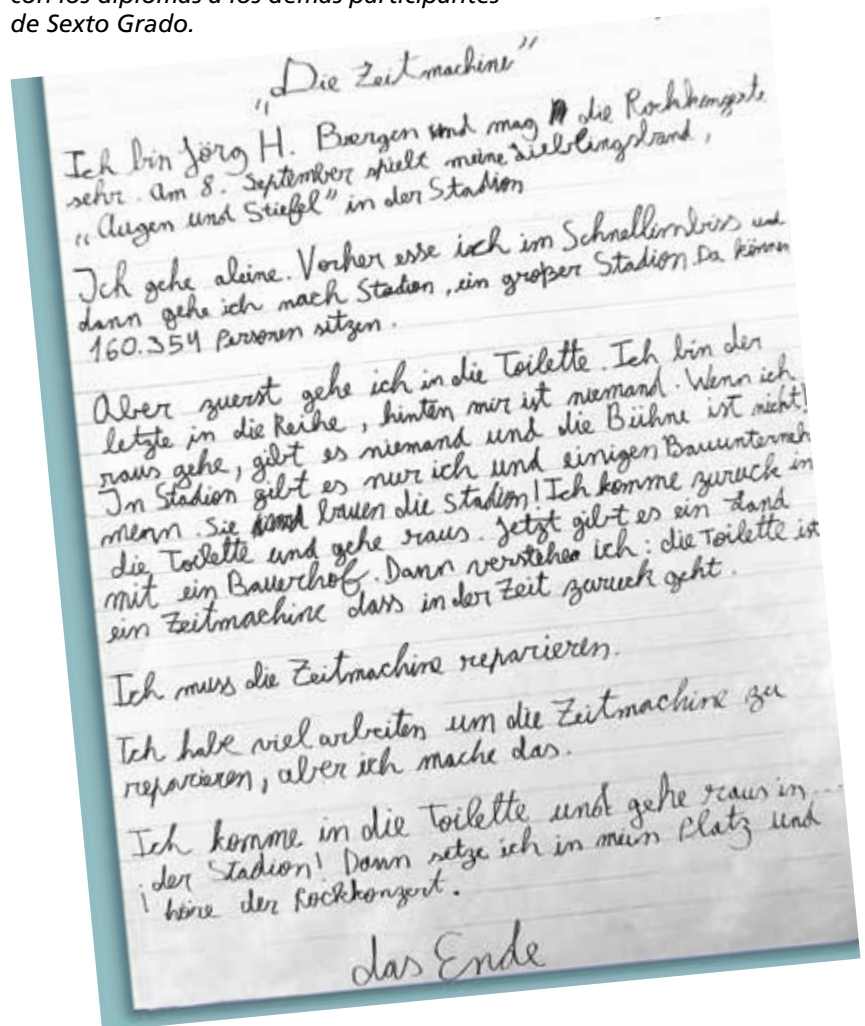 con los diplomas a los demás participantes
de Sexto Grado.
„Die Zeitmachine"
Ich bin Jörg H. Bergen und mag die Rockkonzerte
sehr. Am 8. September spielt meine Lieblingsband,
„Augen und Stiefel" in der Stadion
Ich gehe aleine. Vorher esse ich im Schnellimbiss und
dann gehe ich nach Stadion, ein großer Stadion. Da können
160.354 Personen sitzen.
Aber zuerst gehe ich in die Toilette. Ich bin der
letzte in die Reihe, hinten mir ist niemand. Wenn ich
raus gehe, gibt es niemand und die Bühne ist nicht!
In Stadion gibt es nur ich und einigen Bauunterneh
menn. Sie bauen die Stadion! Ich komme zuruck in
die Toilette und gehe raus. Jetzt gibt es ein Land
mit ein Bauerhof. Dann verstehe ich: die Toilette ist
ein Zeitmachine dass in der Zeit zuruck geht.
Ich muss die Zeitmachine reparieren.
Ich habe viel arbeiten um die Zeitmachine zu
reparieren, aber ich mache das.
Ich komme in die Toilette und gehe raus in...
¡der Stadion! Dann setze ich in mein Platz und
höre der Rockkonzert.
das Ende